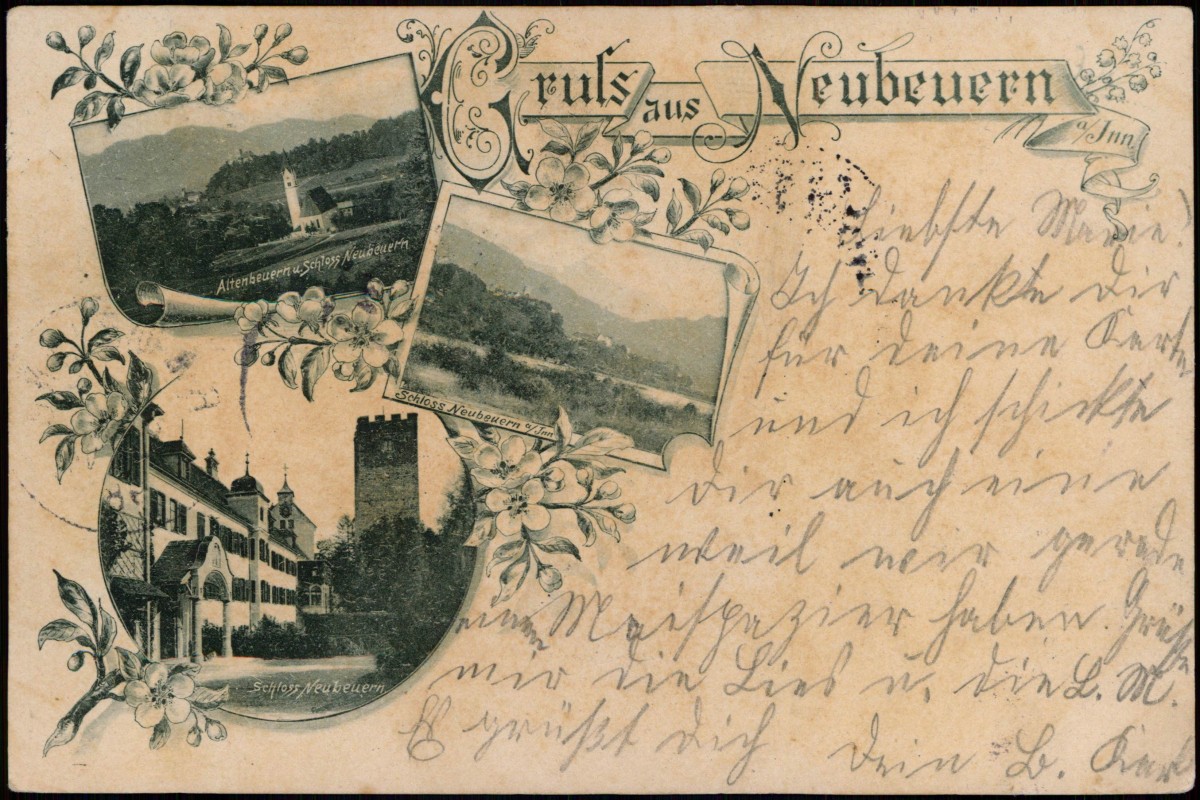 Gruſs aus Neubeuern
a/Inn.
Altenbeuern u. Schloss Neubeuern
Schloss Neubeuern a/Inn
Schloss Neubeuern
Liebste Marie!
Ich dankte dir
für deine Karte
und ich schickte
dir auch eine
weil wir gerade
einen Maispazier haben. Grüße
mir die Lies u. die L. M.
Es grüßt dich Dein B. Karl